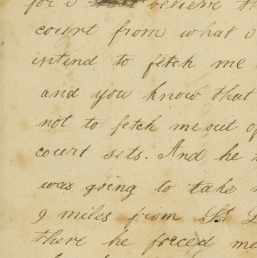 for I believe th
court from what I
intend to fetch me
and you know that
not to fetch me out of
court sets. And he
was going to take
9 miles from St. L
there he forced me